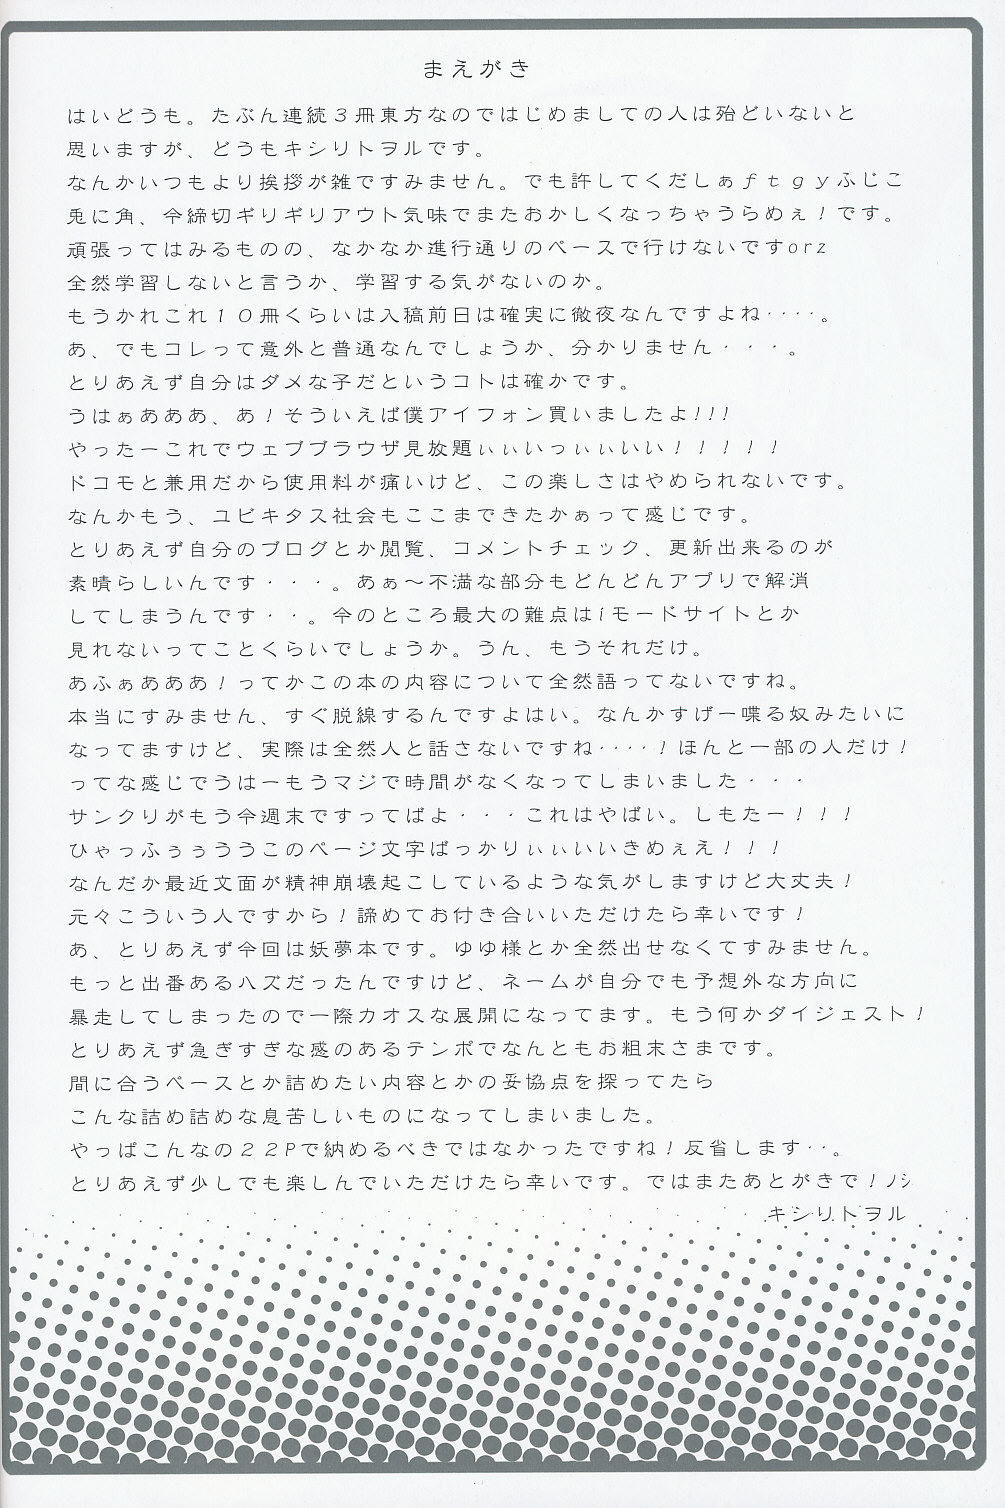 まえがき
はいどうも。たぶん連続３冊東方なのではじめましての人は殆どいないと
思いますが、どうもキシリトヲルです。
なんかいつもより挨拶が雑ですみません。でも許してくだしぁｆｔｇｙふじこ
兎に角、今締切ギリギリアウト気味でまたおかしくなっちゃうらめぇ！です。
頑張ってはみるものの、なかなか進行通りのペースで行けないですorz
全然学習しないと言うか、学習する気がないのか。
もうかれこれ１０冊くらいは入稿前日は確実に徹夜なんですよね‥‥。
あ、でもコレって意外と普通なんでしょうか、分かりません・・・。
とりあえず自分はダメな子だというコトは確かです。
うはぁあああ、あ！そういえば僕アイフォン買いましたよ!!!
やったーこれでウェブブラウザ見放題ぃぃいっぃぃいい！！！！！
ドコモと兼用だから使用料が痛いけど、この楽しさはやめられないです。
なんかもう、ユビキタス社会もここまできたかぁって感じです。
とりあえず自分のブログとか閲覧、コメントチェック、更新出来るのが
素晴らしいんです・・・。あぁ～不満な部分もどんどんアプリで解消
してしまうんです・・。今のところ最大の難点はiモードサイトとか
見れないってことくらいでしょうか。うん、もうそれだけ。
あふぁあああ！ってかこの本の内容について全然語ってないですね。
本当にすみません、すぐ脱線するんですよはい。なんかすげー喋る奴みたいに
なってますけど、実際は全然人と話さないですね‥‥！ほんと一部の人だけ！
ってな感じでうはーもうマジで時間がなくなってしまいました・・・
サンクリがもう今週末ですってばよ・・・これはやばい。しもたー！！！
ひゃっふぅぅううこのページ文字ばっかりぃぃいいきめぇえ！！！
なんだか最近文面が精神崩壊起こしているような気がしますけど大丈夫！
元々こういう人ですから！諦めてお付き合いいただけたら幸いです！
あ、とりあえず今回は妖夢本です。ゆゆ様とか全然出せなくてすみません。
もっと出番あるハズだったんですけど、ネームが自分でも予想外な方向に
暴走してしまったので一際カオスな展開になってます。もう何かダイジェスト！
とりあえず急ぎすぎな感のあるテンポでなんともお粗末さまです。
間に合うペースとか詰めたい内容とかの妥協点を探ってたら
こんな詰め詰めな息苦しいものになってしまいました。
やっぱこんなの２２Pで納めるべきではなかったですね！反省します‥。
とりあえず少しでも楽しんでいただけたら幸いです。ではまたあとがきで！ノシ
キシリトヲル